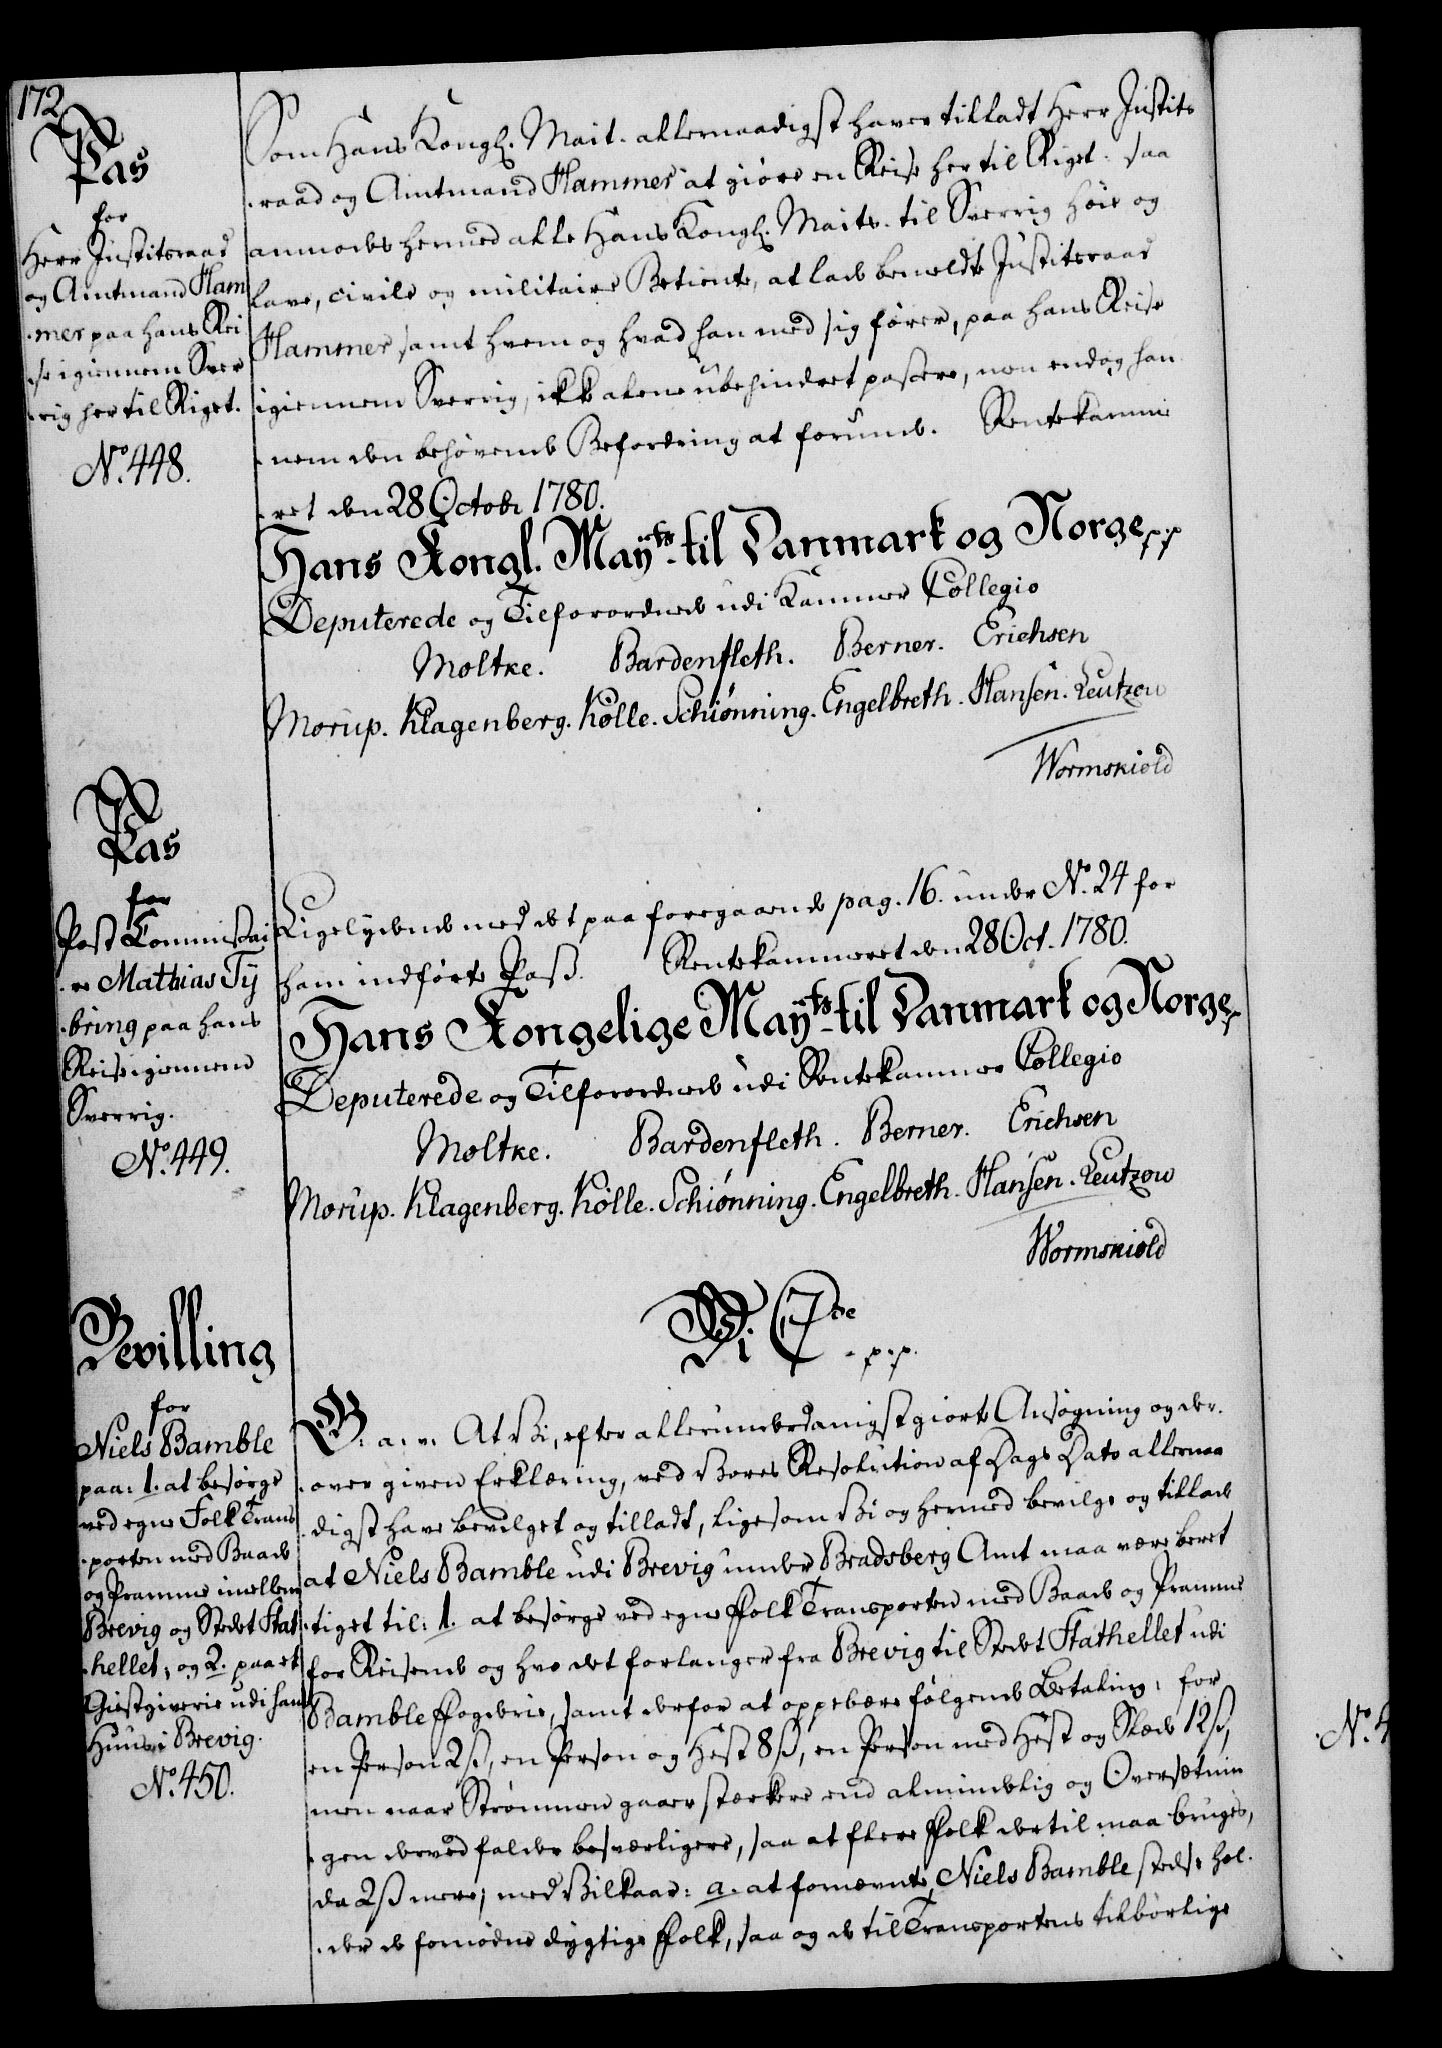 172
Pas
for
Herr Justitsraad
og Amtmand Ham
-mer paa hans Rei
-se igiennem Sver
-rig her til Riget.
No. 448.
Som Hans Kongl. Mait. allernaadigst haver tilladt Herr Justits
-raad og Amtmand Hammer at giøre en Reise her til Riget: saa
anmodes hermed alle Hans Kongl. Maits. til Sverrig høie og
lave, civile og militaire Betiente, at lade bemeldte Justitsraad
Hammer samt hvem og hvad han med sig fører, paa hans Reise
igiennem Sverrig, ikke alene ubehindret passere, men endog han
-nem den behøvende Befordring at forunde. Rentekamme
-ret den 28 Octobr 1780.
Hans Kongl. Mayts. til Danmark og Norge p.p.
Deputerede og Tilforordnede udi Kammer Collegio
Moltke. Bardenfleth. Berner. Erichsen
Morup. Klagenberg. Kølle. Schiønning. Engelbreth. Hansen. Leutzow
Wormskiold
Pas
for
Post Commissai
-re Mathias Ty
-bring paa hans
Reise igiennem
Sverrig.
No. 449.
Ligelydende med det paa foregaaende pag. 16. under No. 24 for
ham indførte Pass. Rentekammeret den 28 Oct. 1780.
Hans Kongelige Mayts. til Danmark og Norge p.
Deputerede og Tilforordnede udi Rentekammer Collegio
Moltke. Bardenfleth. Berner. Erichsen
Morup. Klagenberg. Kølle. Schiønning. Engelbreth. Hansen. Leutzow
Wormskiold
Bevilling
for
Niels Bamble
paa: 1. at besørge
ved egne Folk Trans
-porten med Baade
og Pramme imellem
Brevig og Stedet Stat
-hellet, og 2. paa et
Giestgiverie udi hans
Huus i Brevig.
No. 450.
Vi C 7de
p.p.
G. a. v. At Vi, efter allerunderdanigst giorte Ansøgning og der-
-over given Erklæring, ved Vores Resolution af Dags Dato allernaa
-digst have bevilget og tilladt, ligesom Vi og hermed bevilge og tillade
at Niels Bamble udi Brevig under Bradsberg Amt maa være beret
-tiget til: 1. at besørge ved egne Folk Transporten med Baade og Pramme
for Reisende og hvo det forlanger fra Brevig til Stedet Stathellet udi
Bamble Fogderie, samt derfor at oppebære følgende Betaling: for
en Person 2 ß, en Person og Hest 8 ß, en Person med Hest og Slæde 12 ß,
men naar Strømmen gaaer stærkere end almindelig og Oversætnin
-gen derved falder besværligere, saa at flere Folk dertil maa bruges,
da 2 ß mere; med Vilkaar: a. at fornævnte Niels Bamble stedse hol-
-der de fornødne dygtige Folk, saa og de til Transportens tilbørlige
No. 4